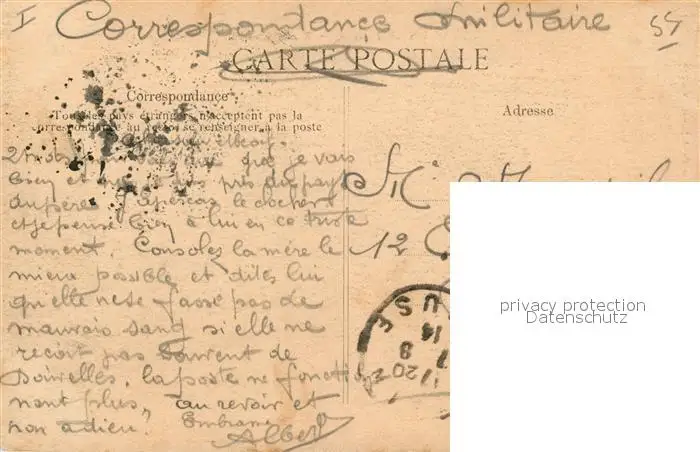 I Correspondance Militaire 55
CARTE POSTALE
Correspondance
Tous les pays étrangers n'acceptent pas la
correspondance au recto, se renseigner à la poste
Adresse
2 mots que je vais
bien et près du pays
du père J'aperçois le clocher
et je pense bien à lui en ce triste
moment. Consoles la mère le
mieux possible et dites lui
qu'elle ne se fasse pas de
mauvais sang si elle ne
reçoit pas souvent de
nouvelles, la poste ne fonction
nant plus, au revoir et
non adieu. Albert
M
12
USE
14
8
privacy protection
Datenschutz